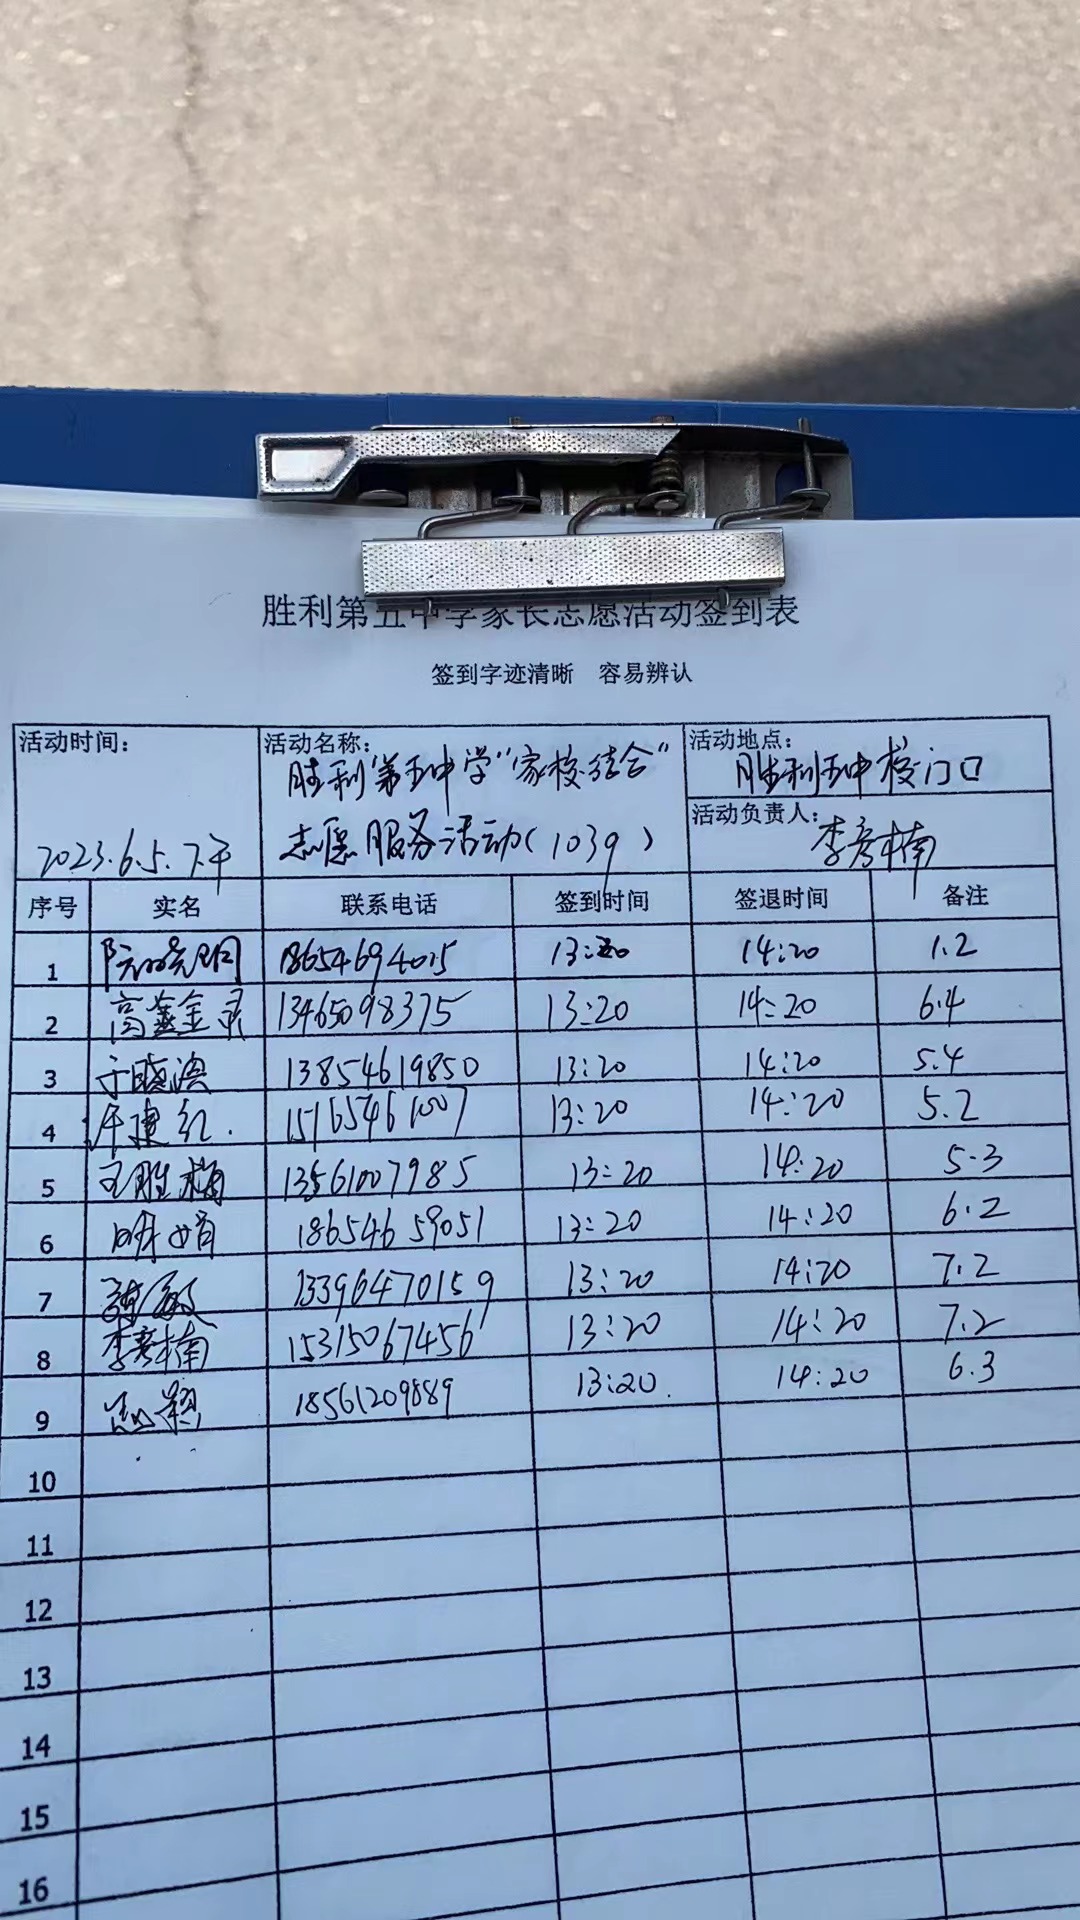 胜利第五中学家长志愿活动签到表
签到字迹清晰 容易辨认
活动时间: 2023.6.5.下午
活动名称: 胜利第五中学"家校结合"
志愿服务活动(1039)
活动地点: 胜利五中校门口
活动负责人: 李彦楠
序号 实名 联系电话 签到时间 签退时间 备注
1 18654694015 13:20 14:20 1.2
2 高鑫金录 13465098375 13:20 14:20 6.4
3 于晓滨 13854619850 13:20 14:20 5.4
4 许建红. 15165461007 13:20 14:20 5.2
5 王胜梅 13561007985 13:20 14:20 5.3
6 明娟 18654659051 13:20 14:20 6.2
7 敏 13396470159 13:20 14:20 7.2
8 李彦楠 15315067456 13:20 14:20 7.2
9 颖 18561209889 13:20. 14:20 6.3
10
11
12
13
14
15
16